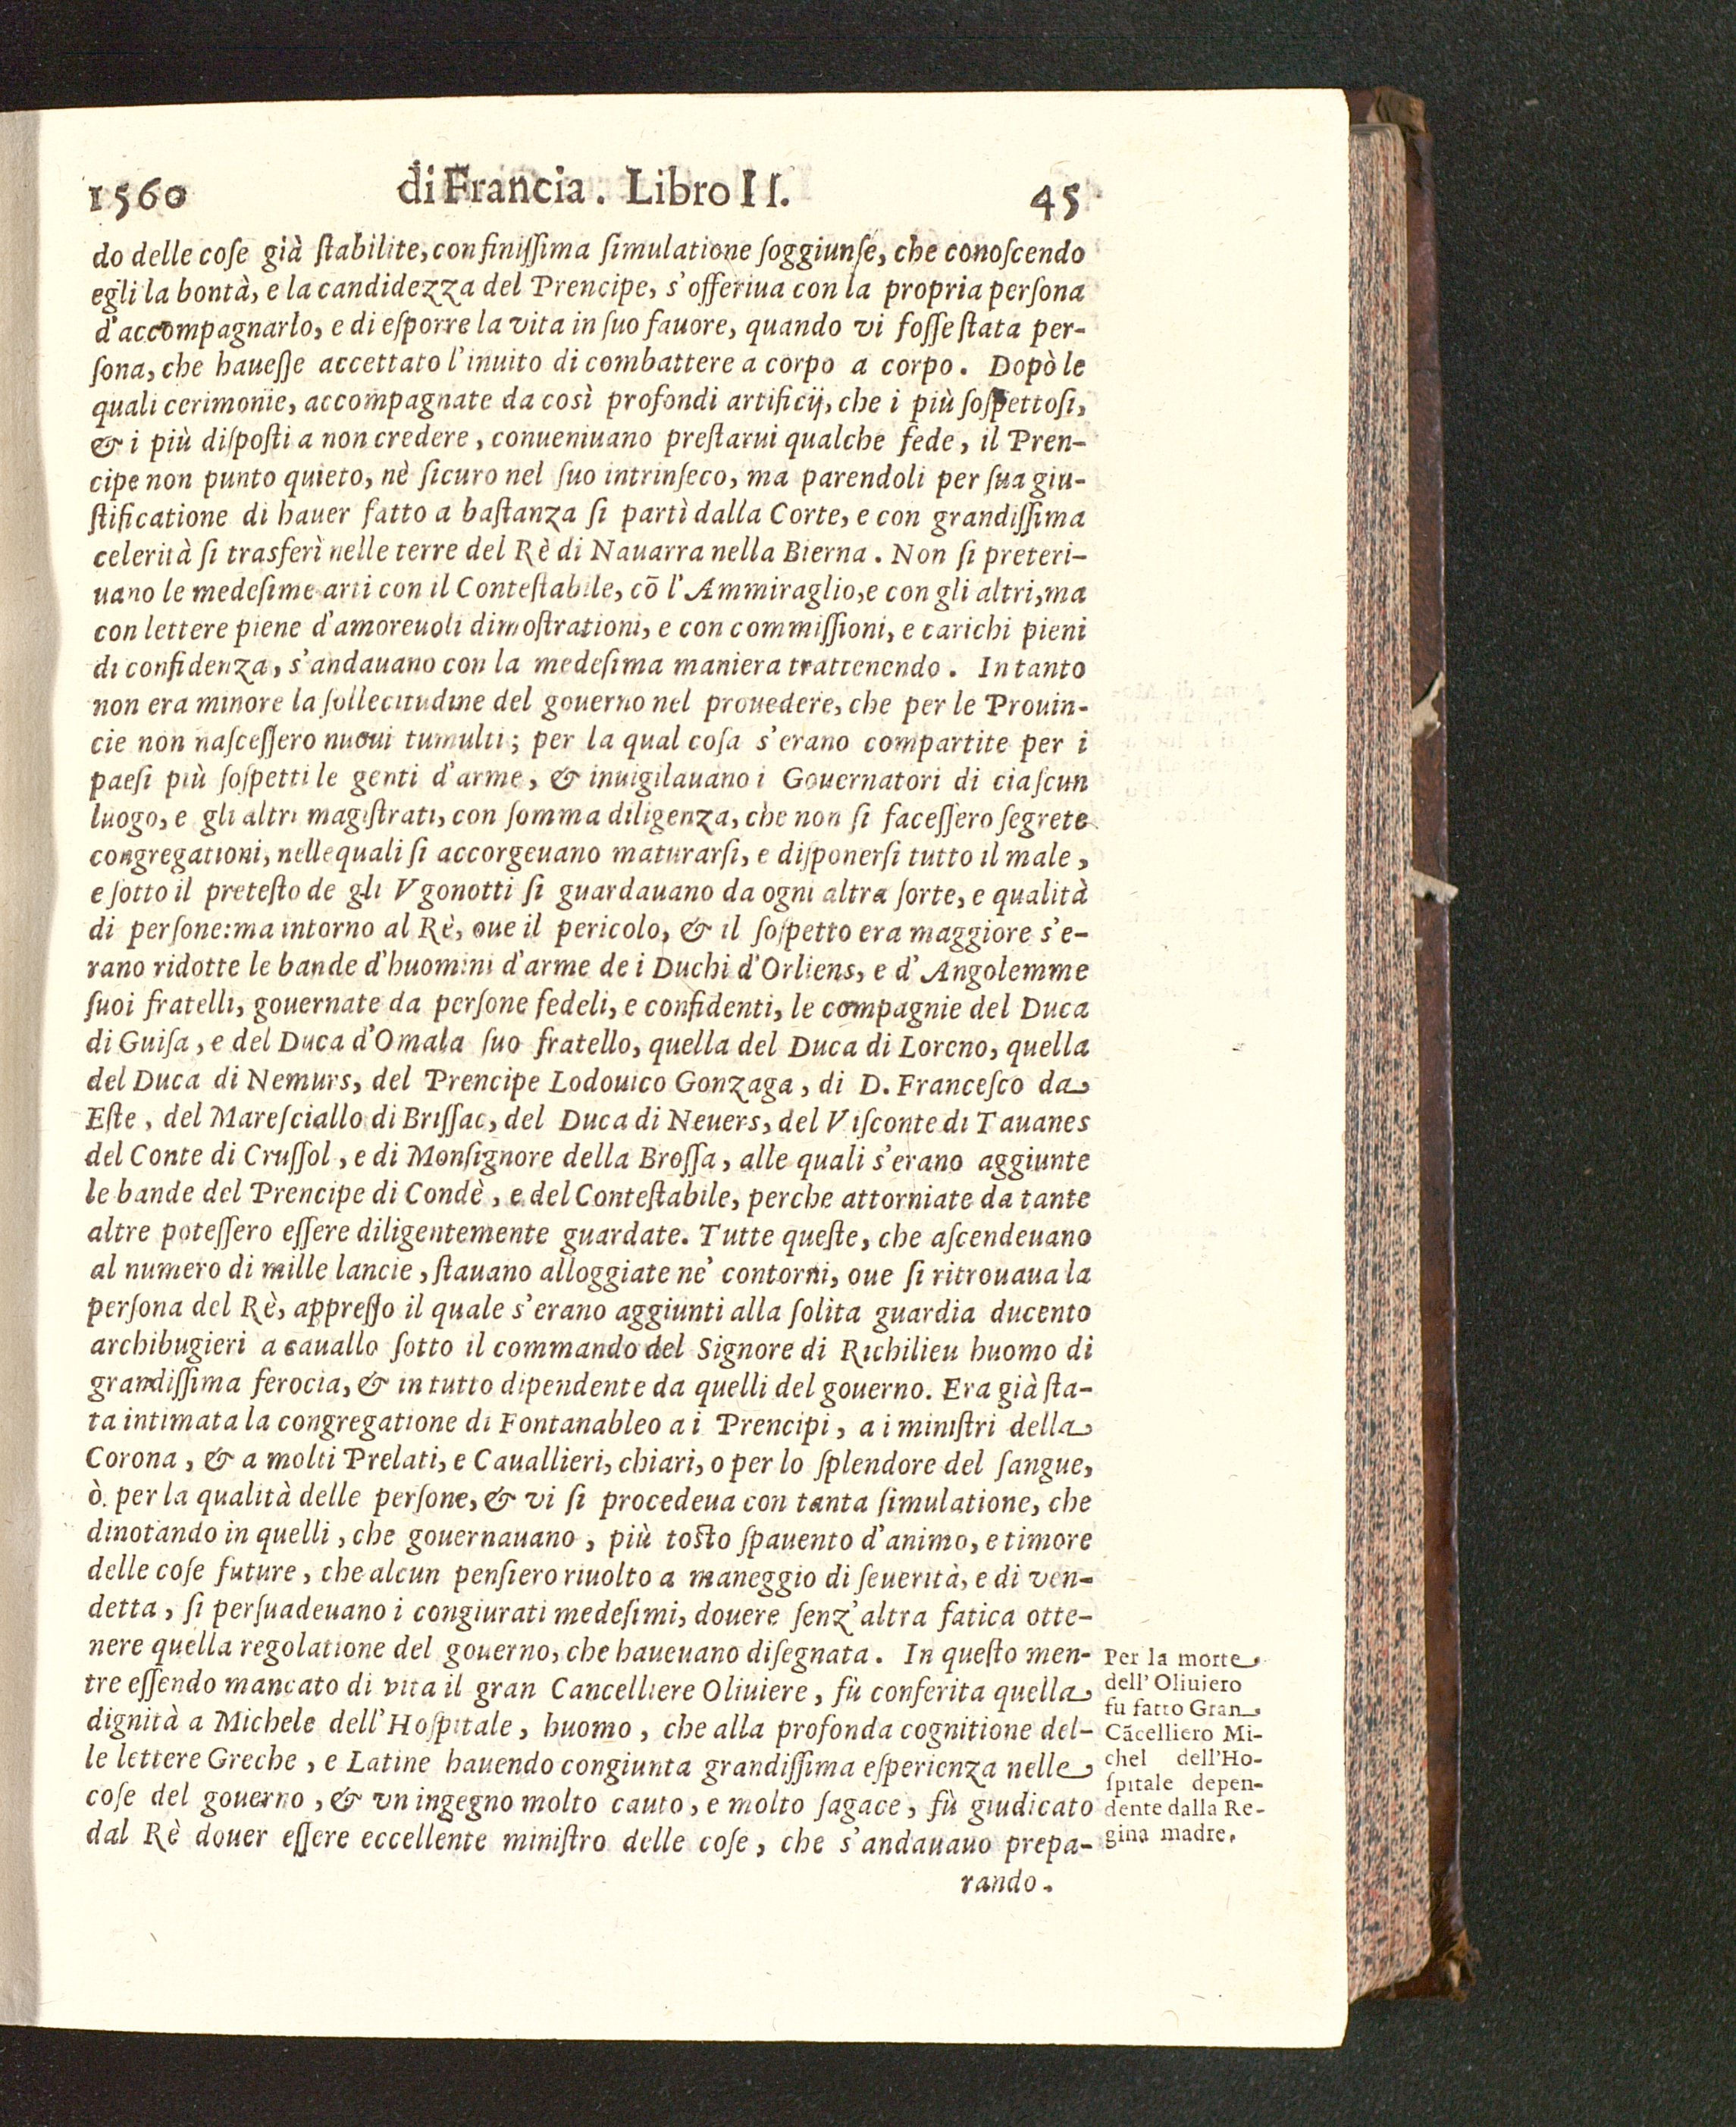 1560 di Francia. Libro II. 45
do delle coſe già ſtabilite, con finiſſima ſimulatione ſoggiunſe, che conoſcendo
egli la bontà, e la candidezza del Prencipe, s'offeriua con la propria perſona
d'accompagnarlo, e di eſporre la vita in ſuo fauore, quando vi foſſe ſtata per-
ſona, che haueſſe accettato l'inuito di combattere a corpo a corpo. Dopò le
quali cerimonie, accompagnate da così profondi artificij, che i più ſoſpettoſi,
& i più diſpoſti a non credere, conueniuano preſtarui qualche fede, il Pren-
cipe non punto quieto, nè ſicuro nel ſuo intrinſeco, ma parendoli per ſua giu-
ſtificatione di hauer fatto a baſtanza ſi partì dalla Corte, e con grandiſſima
celerità ſi trasferì nelle terre del Rè di Nauarra nella Bierna. Non ſi preteri-
uano le medeſime arti con il Conteſtabile, cõ l'Ammiraglio, e con gli altri, ma
con lettere piene d'amoreuoli dimoſtrationi, e con commiſſioni, e carichi pieni
di confidenza, s'andauano con la medeſima maniera trattenendo. In tanto
non era minore la ſollecitudine del gouerno nel prouedere, che per le Prouin-
cie non naſceſſero nuoui tumulti; per la qual coſa s'erano compartite per i
paeſi più ſoſpetti le genti d'arme, & inuigilauano i Gouernatori di ciaſcun
luogo, e gli altri magiſtrati, con ſomma diligenza, che non ſi faceſſero ſegrete
congregationi, nelle quali ſi accorgeuano maturarſi, e diſponerſi tutto il male,
e ſotto il preteſto de gli Vgonotti ſi guardauano da ogni altra ſorte, e qualità
di perſone: ma intorno al Rè, oue il pericolo, & il ſoſpetto era maggiore s'e-
rano ridotte le bande d'huomini d'arme de i Duchi d'Orliens, e d'Angolemme
ſuoi fratelli, gouernate da perſone fedeli, e confidenti, le compagnie del Duca
di Guiſa, e del Duca d'Omala ſuo fratello, quella del Duca di Loreno, quella
del Duca di Nemurs, del Prencipe Lodouico Gonzaga, di D. Franceſco da
Eſte, del Mareſciallo di Briſſac, del Duca di Neuers, del Viſconte di Tauanes
del Conte di Cruſſol, e di Monſignore della Broſſa, alle quali s'erano aggiunte
le bande del Prencipe di Condè, e del Conteſtabile, perche attorniate da tante
altre poteſſero eſſere diligentemente guardate. Tutte queſte, che aſcendeuano
al numero di mille lancie, ſtauano alloggiate ne' contorni, oue ſi ritrouaua la
perſona del Rè, appreſſo il quale s'erano aggiunti alla ſolita guardia ducento
archibugieri a cauallo ſotto il commando del Signore di Richilieu huomo di
grandiſſima ferocia, & in tutto dipendente da quelli del gouerno. Era già ſta-
ta intimata la congregatione di Fontanableo a i Prencipi, a i miniſtri della
Corona, & a molti Prelati, e Cauallieri, chiari, o per lo ſplendore del ſangue,
ò per la qualità delle perſone, & vi ſi procedeua con tanta ſimulatione, che
dinotando in quelli, che gouernauano, più toſto ſpauento d'animo, e timore
delle coſe future, che alcun penſiero riuolto a maneggio di ſeuerità, e di ven-
detta, ſi perſuadeuano i congiurati medeſimi, douere ſenz'altra fatica otte-
nere quella regolatione del gouerno, che haueuano diſegnata. In queſto men-
tre eſſendo mancato di vita il gran Cancelliere Oliuiere, fù conferita quella
dignità a Michele dell'Hoſpitale, huomo, che alla profonda cognitione del-
le lettere Greche, e Latine hauendo congiunta grandiſſima eſperienza nelle
coſe del gouerno, & vn ingegno molto cauto, e molto ſagace, fù giudicato
dal Rè douer eſſere eccellente miniſtro delle coſe, che s'andauauo prepa-
rando.
Per la morte
dell'Oliuiero
fu fatto Gran
Cãcelliero Mi-
chel dell'Ho-
ſpitale depen-
dente dalla Re-
gina madre.